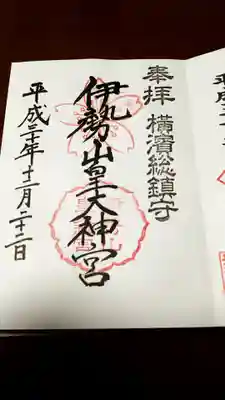 奉拝 横濱総鎮守
伊勢山皇大神宮
平成二十年十二月二十二日
平成二